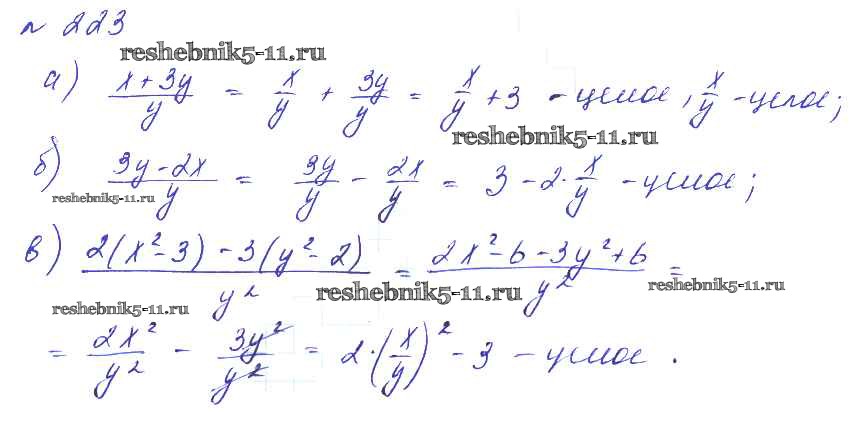 № 223
reshebnik5-11.ru
а) (x + 3y)/y = x/y + 3y/y = x/y + 3 - целое, x/y - целое;
reshebnik5-11.ru
б) (3y - 2x)/y = 3y/y - 2x/y = 3 - 2·x/y - целое;
reshebnik5-11.ru
в) (2(x² - 3) - 3(y² - 2))/y² = (2x² - 6 - 3y² + 6)/y² =
reshebnik5-11.ru reshebnik5-11.ru reshebnik5-11.ru
= 2x²/y² - 3y²/y² = 2·(x/y)² - 3 - целое.